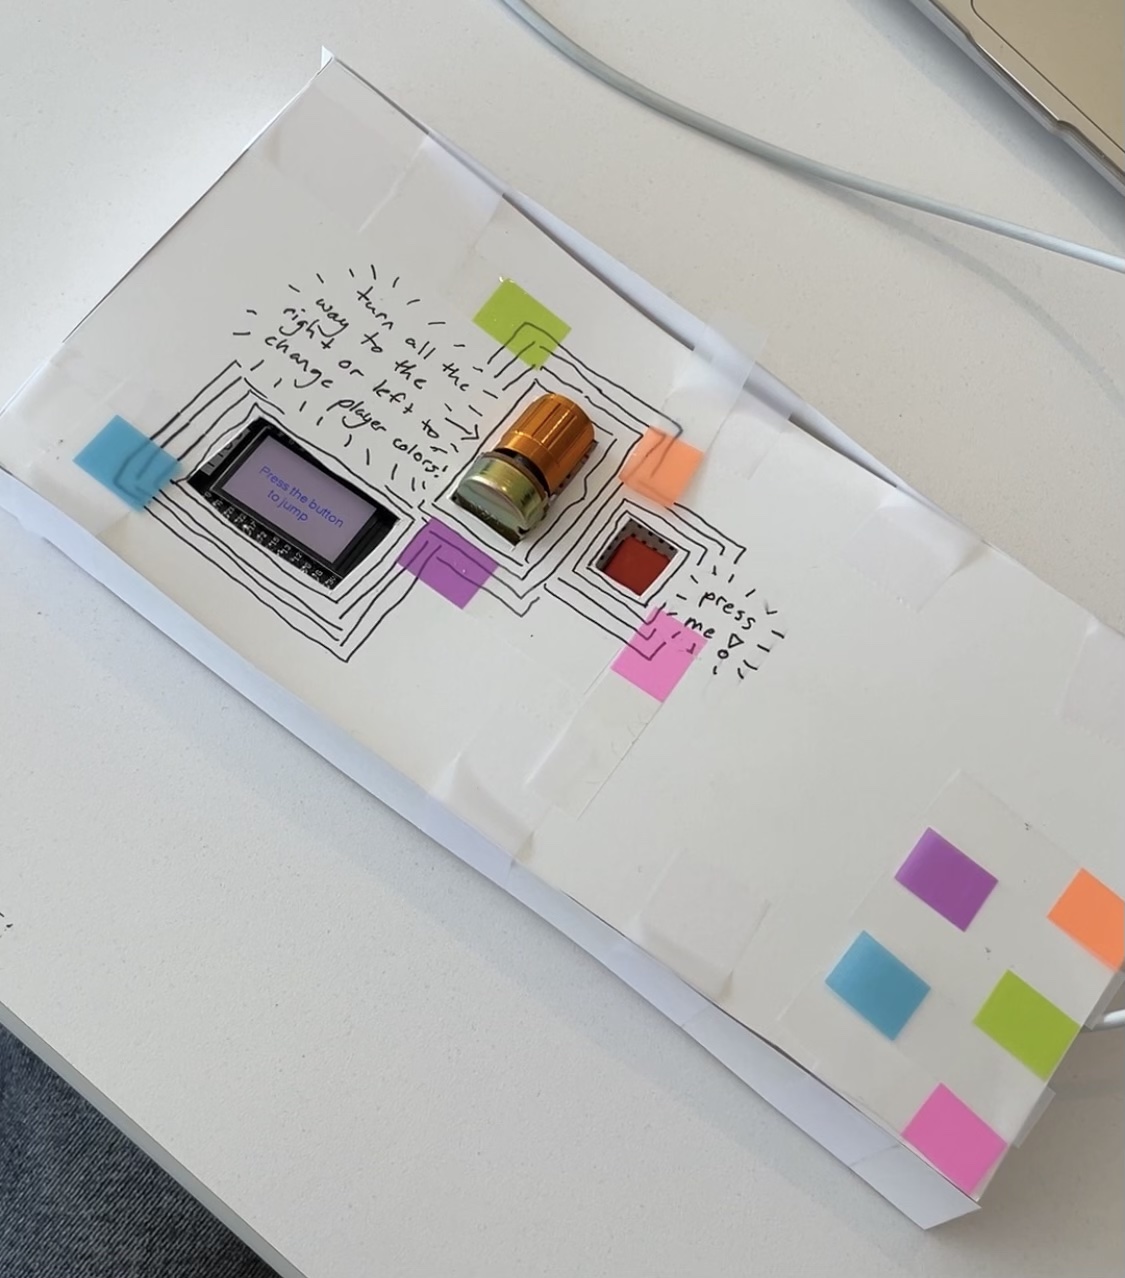 turn all the
way to the
right or left to
change player colors!
Press the button
to jump
press
me!